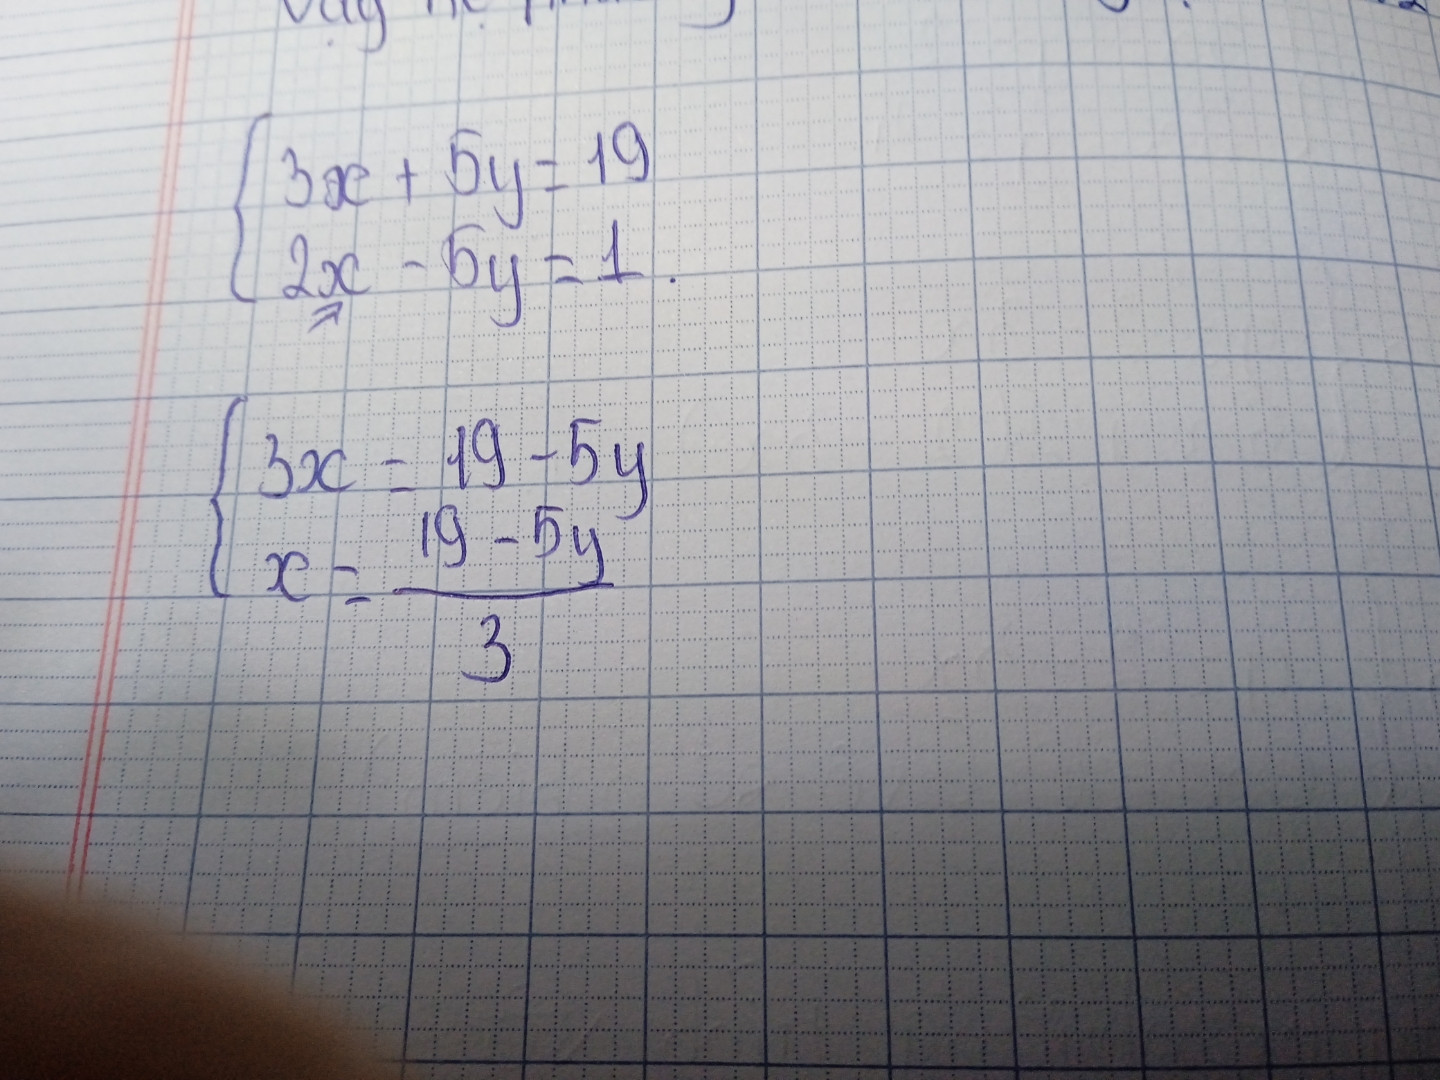 3x + 5y = 19
2x - 5y = 1.
3x = 19 - 5y
x = \frac{19 - 5y}{3}